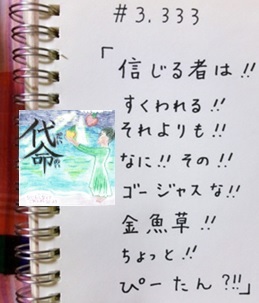 #3.333
「信じる者は!!
すくわれる!!
それよりも!!
なに!! その!!
ゴージャスな!!
金魚草!!
ちょっと!!
ぴーたん?!!」
代命